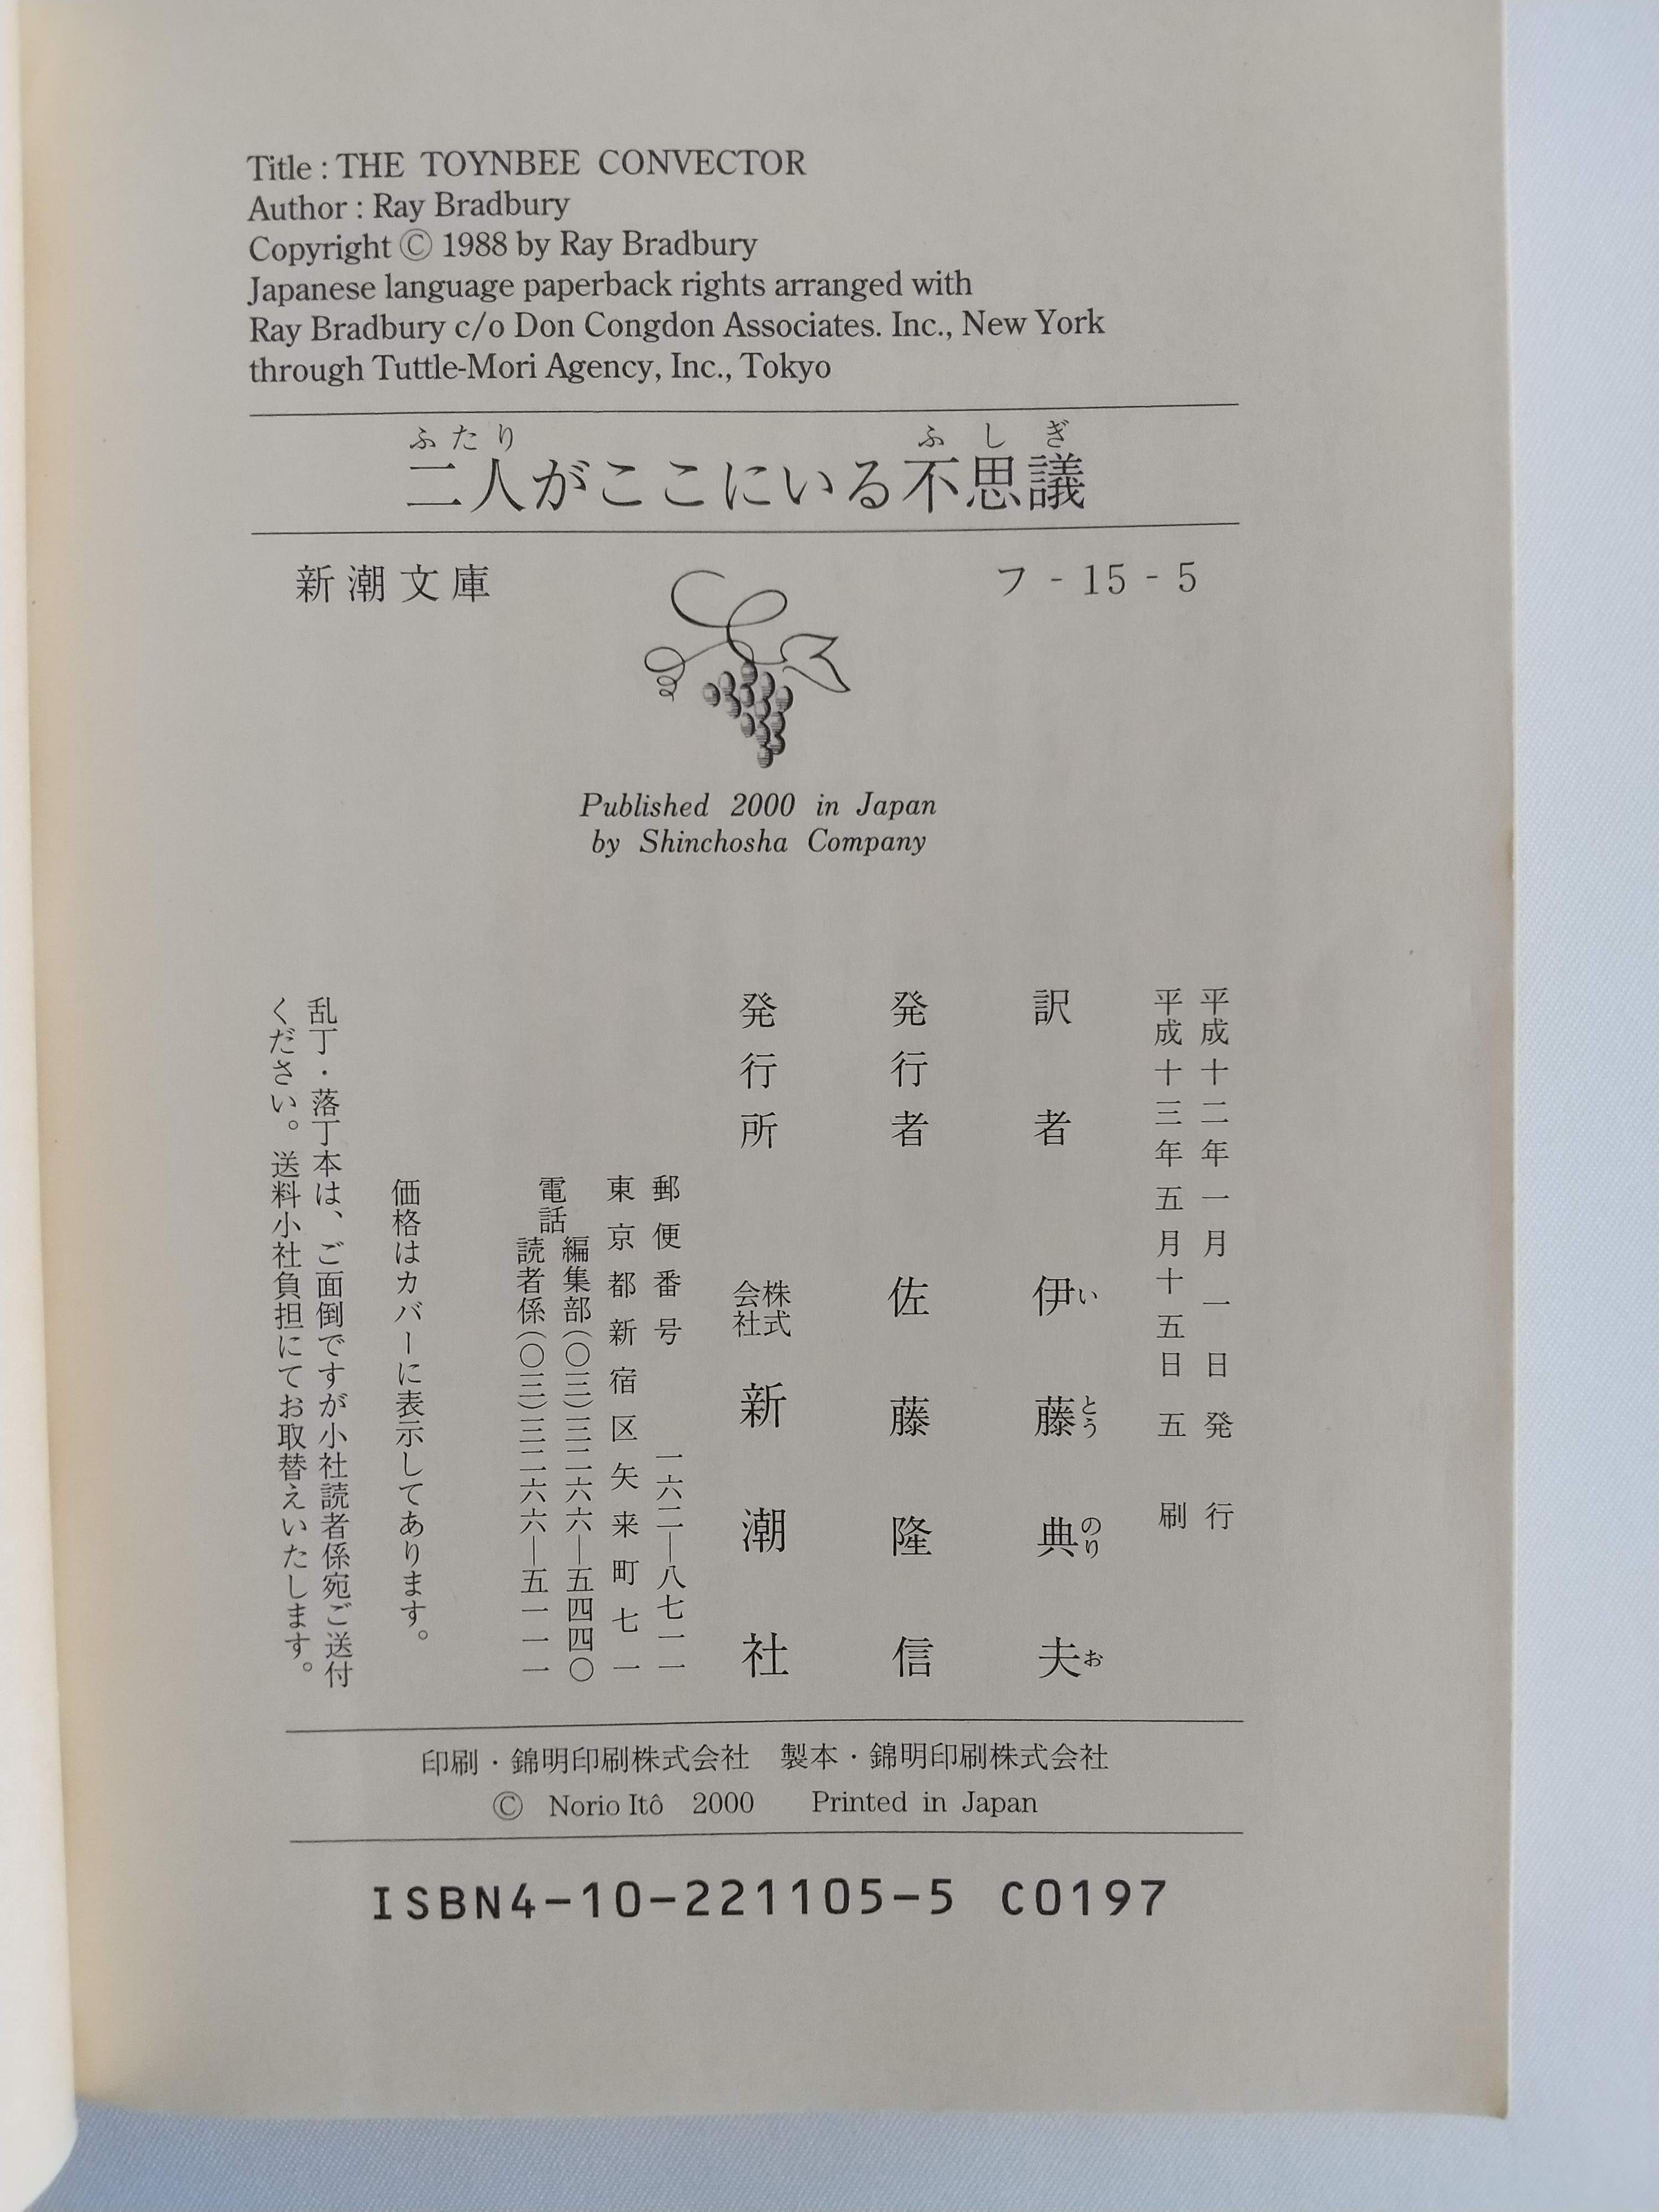 Title : THE TOYNBEE CONVECTOR
Author : Ray Bradbury
Copyright © 1988 by Ray Bradbury
Japanese language paperback rights arranged with
Ray Bradbury c/o Don Congdon Associates. Inc., New York
through Tuttle-Mori Agency, Inc., Tokyo
ふたり ふしぎ
二人がここにいる不思議
新潮文庫 フ - 15 - 5
Published 2000 in Japan
by Shinchosha Company
平成十二年一月一日発行
平成十三年五月十五日五刷
訳者 伊藤典夫
いとうのりお
発行者 佐藤隆信
発行所 株式会社 新潮社
郵便番号 一六二―八七一一
東京都新宿区矢来町七一
電話 編集部(〇三)三二六六―五四四〇
読者係(〇三)三二六六―五一一一
価格はカバーに表示してあります。
乱丁・落丁本は、ご面倒ですが小社読者係宛ご送付
ください。送料小社負担にてお取替えいたします。
印刷・錦明印刷株式会社 製本・錦明印刷株式会社
© Norio Itô 2000 Printed in Japan
ISBN4-10-221105-5 C0197